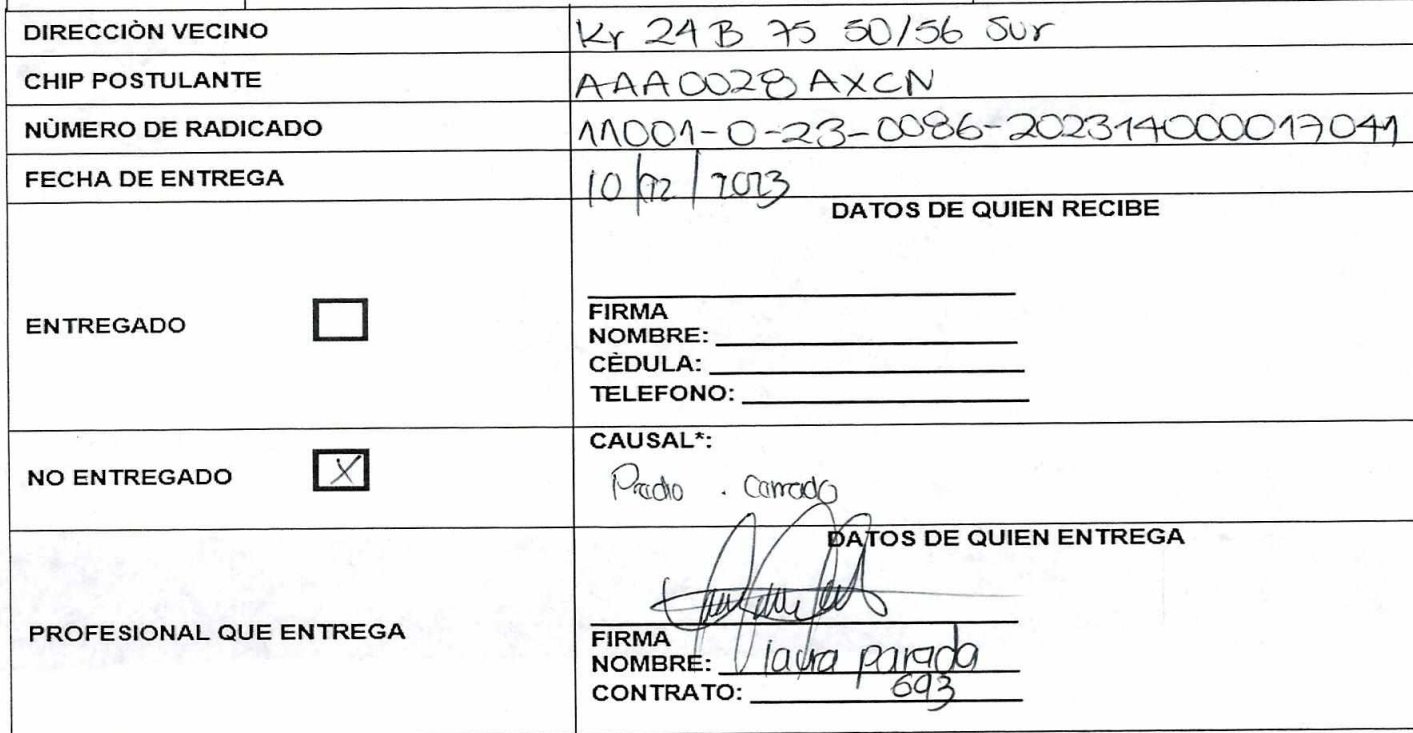 DIRECCIÒN VECINO Kr 24 B 75 50/56 Sur
CHIP POSTULANTE AAA0028AXCN
NÙMERO DE RADICADO 11001-0-23-0086-202314000017041
FECHA DE ENTREGA 10/12/2023
DATOS DE QUIEN RECIBE
ENTREGADO
FIRMA
NOMBRE:
CÈDULA:
TELEFONO:
NO ENTREGADO X
CAUSAL*:
Predio . Cerrado
DATOS DE QUIEN ENTREGA
PROFESIONAL QUE ENTREGA
FIRMA
NOMBRE: laura parada
CONTRATO: 693